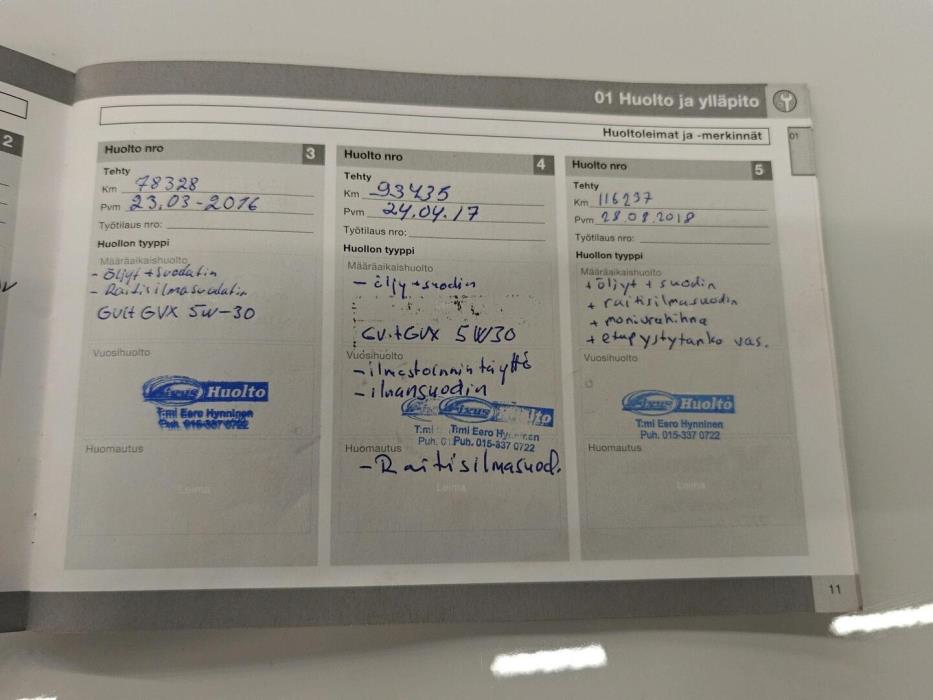 01 Huolto ja ylläpito
Huoltoleimat ja -merkinnät
01
2
Huolto nro 3
Tehty
Km 78328
Pvm 23.03-2016
Työtilaus nro:
Huollon tyyppi
Määräaikaishuolto
- Öljyt + suodatin
- Raitisilmasuodatin
Gulf GVX 5W-30
Vuosihuolto
Fixus Huolto
T:mi Eero Hynninen
Puh. 015-337 0722
Huomautus
Leima
Huolto nro 4
Tehty
Km 93435
Pvm 24.04.17
Työtilaus nro:
Huollon tyyppi
Määräaikaishuolto
- öljy + suodin
GVX 5W30
Vuosihuolto
- ilmastoinnin täyttö
- ilmansuodin
Fixus
T:mi Eero Hynninen
Puh. 015-337 0722
Huomautus
- Raitisilmasuod.
Leima
Huolto nro 5
Tehty
Km 116237
Pvm 28 08.2018
Työtilaus nro:
Huollon tyyppi
Määräaikaishuolto
+ öljyt + suodin
+ raitisilmasuodin
+ moniurahihna
+ etupystytanko vas.
Vuosihuolto
Fixus Huolto
T:mi Eero Hynninen
Puh. 015-337 0722
Huomautus
Leima
11